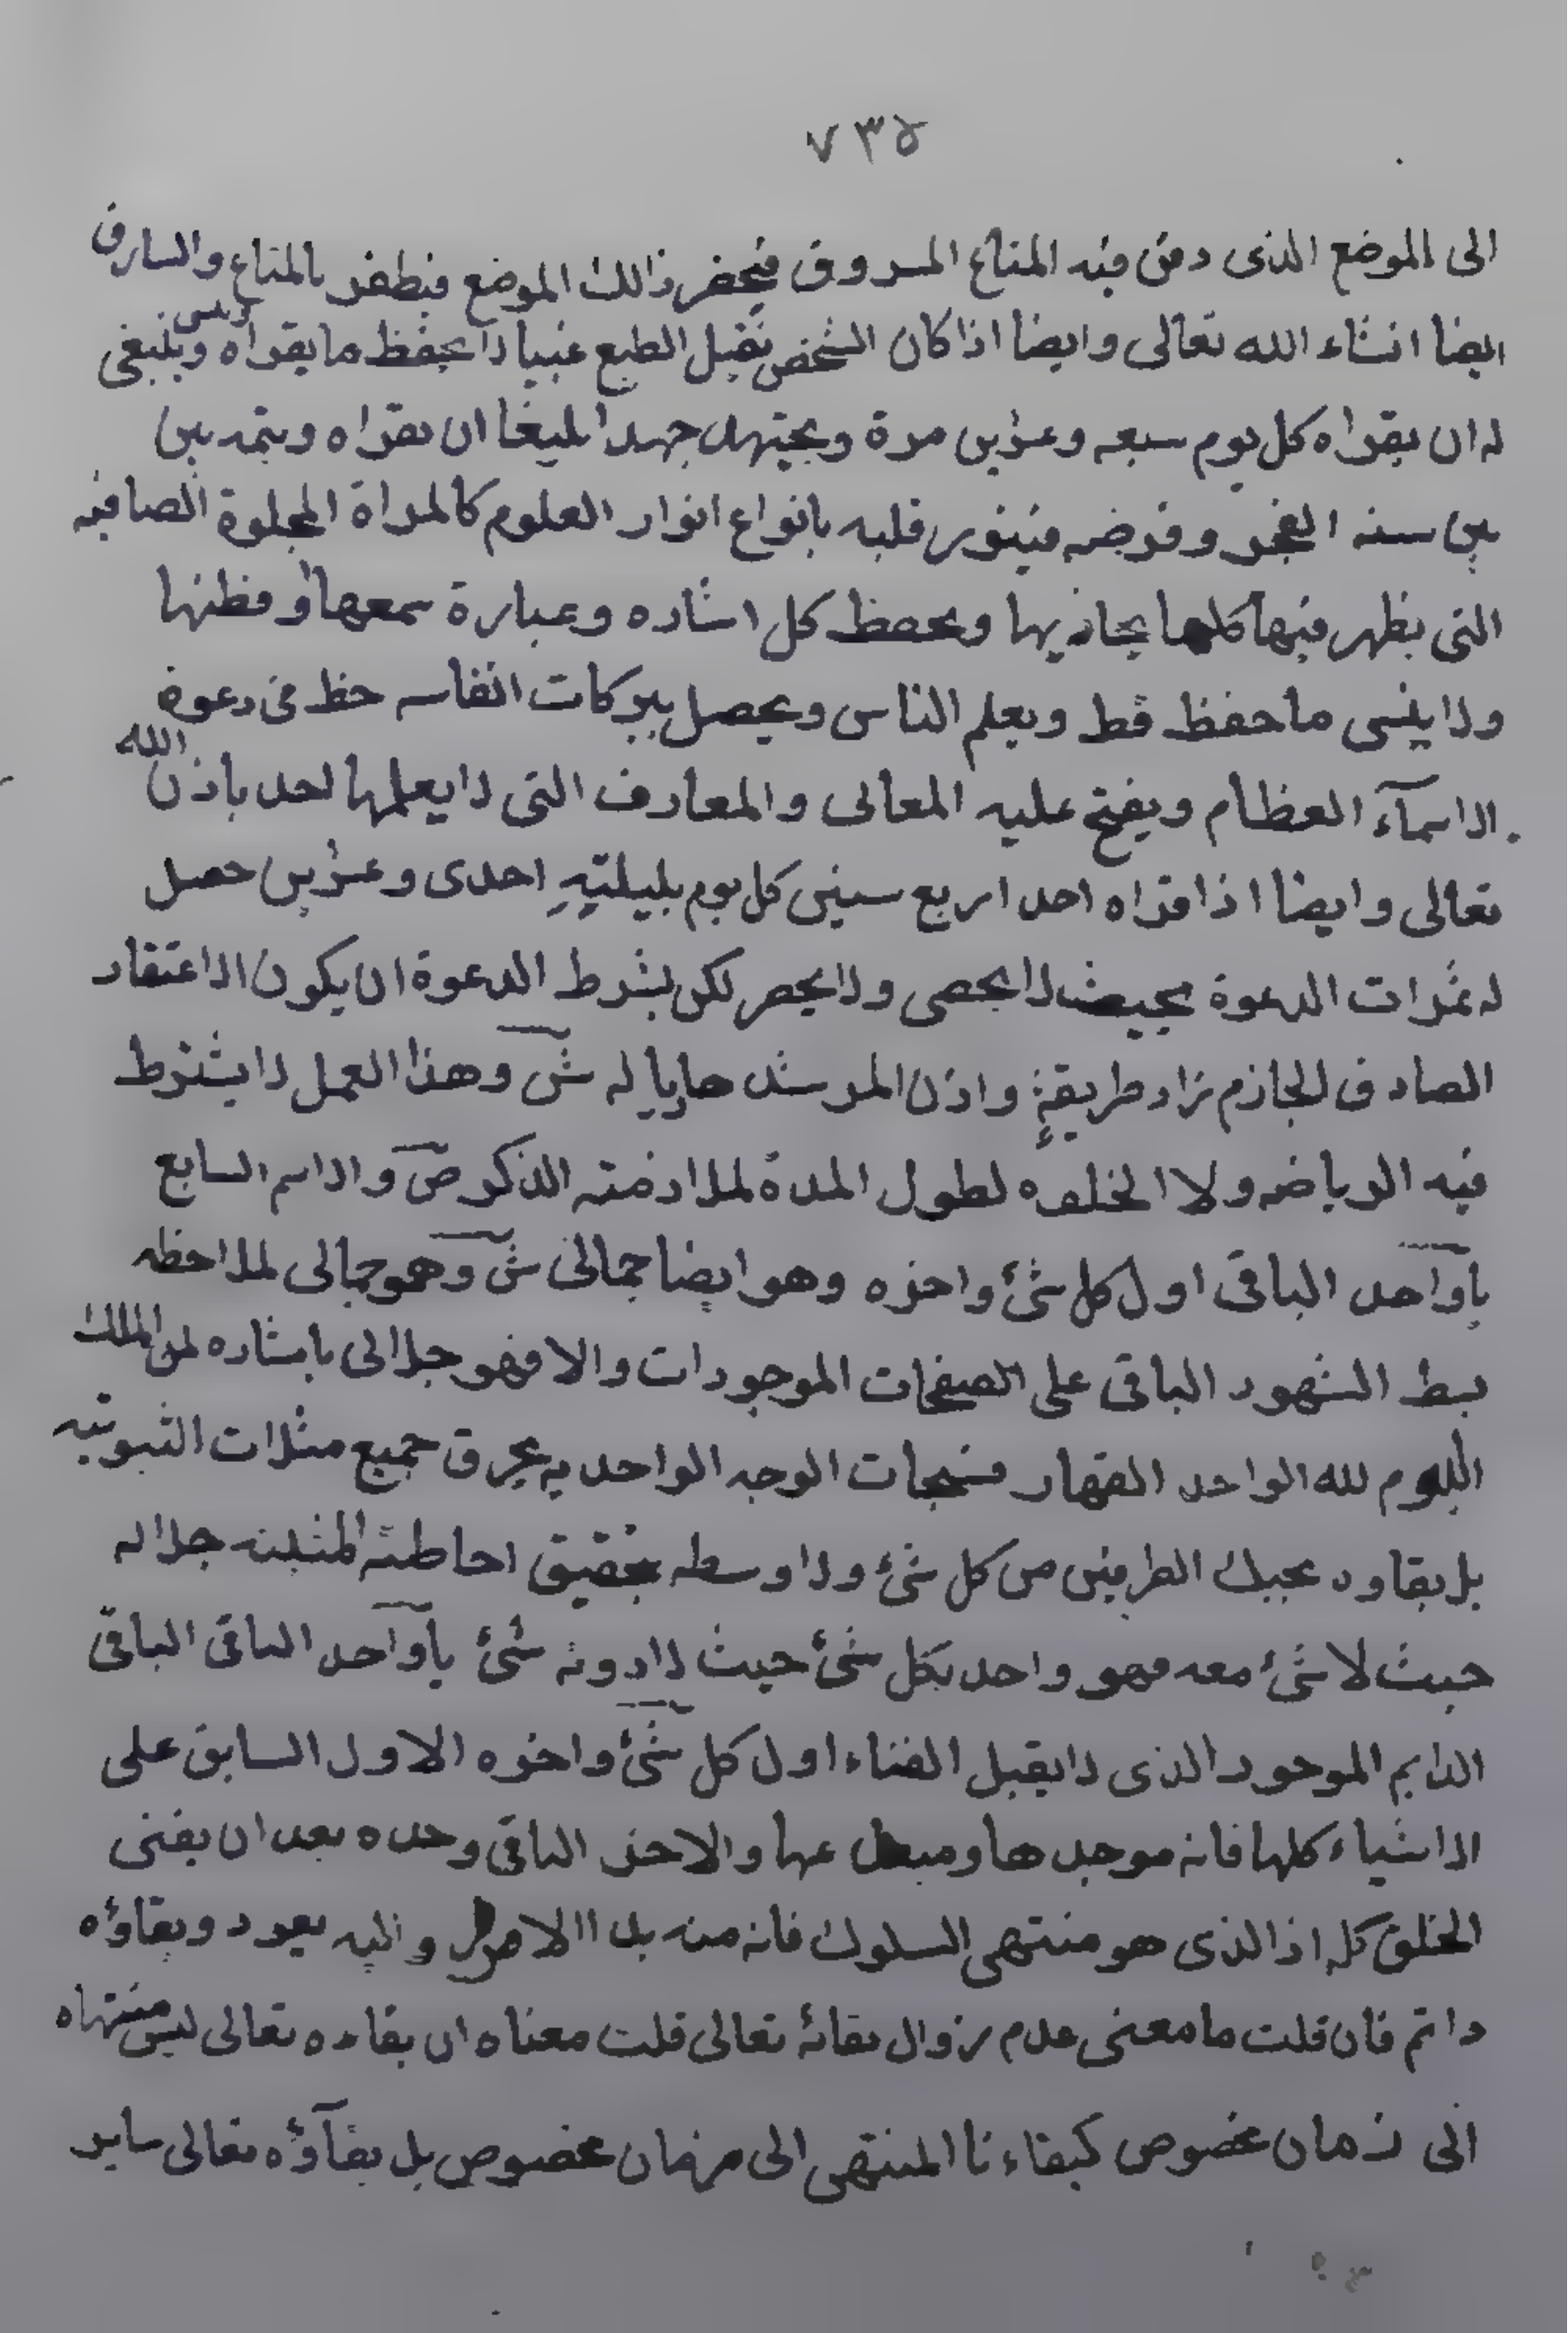 ٧٣٥
الى الموضع الذى دفن فيه المتاع المسروق فيحفر ذالك الموضع فيظفر بالمتاع والسارق
ايضا انشاء الله تعالى وايضا اذا كان الشخص ثقيل الطبع غبيا لا يحفظ ما يقراه وينسى ينبغى
له ان يقراه كل يوم سبعه وعشرين مرة ويجتهد جهدا بليغا ان يقراه ويتمه بين
بين سنه الفجر وفرضه فيتنور قلبه بانواع انوار العلوم كالمراة المجلوة الصافيه
التى يظهر فيها كلما يحاذيها ويحفظ كل اشاره وعبارة سمعها او فطنها
ولا ينسى ما حفظ قط ويعلم الناس ويحصل ببركات انفاسه حظ فى دعوة
الاسمآء العظام ويفتح عليه المعالى والمعارف التى لا يعلمها احد باذن الله
تعالى وايضا اذا قراه احد اربع سنين كل يوم بليلتهِ احدى وعشرين حصل
له ثمرات الدعوة بحيث لا يحصى ولا يحصر لكن بشرط الدعوة ان يكون الاعتقاد
الصادق الجازم زاد طريقهِ واذن المرشد هاديا له ش وهذا العمل لا يشترط
فيه الرياضه ولا الخلوه لطول المدة لملازمته الذكر ص والاسم السابع
يا واحد الباقى اول كل شئ واخره وهو ايضا جمالى ش وهو جمالى لملاحظه
بسط الشهود الباقى على الصفحات الموجودات والا فهو جلالى باشاره لمن الملك
اليوم لله الواحد القهار فسبحات الوجه الواحديه يحرق جميع مثلات الثبوتيه
بل بقاوه الطرفين من كل شئ ولا وسطه بتحقيق احاطته جلاله
حيث لا شئ معه فهو واحد بكل شئ حيث لا دونه شئ يا واحد الباقى الباقى
الدايم الموجود الذى لا يقبل الفناء اول كل شئ واخره الاول السابق على
الاشياء كلها فانه موجدها ومبطل عها والاخر الباقى وحده بعد ان يفنى
الخلق كله اذ الذى هو منتهى السلوك فانه منه بدا الامر واليه يعود وبقاؤه
دائم فان قلت ما معنى عدم زوال بقائه تعالى قلت معناه ان بقاءه تعالى ليس منتهاه
الى زمان مخصوص كبقاءنا المنتهى الى زمان مخصوص بل بقآؤه تعالى ساير